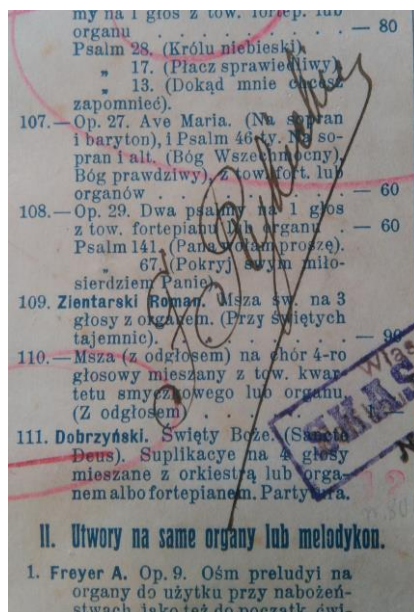 my na 1 głos z tow. fortep. lub
organu . . . . — 80
Psalm 28. (Królu niebieski).
„ 17. (Płacz sprawiedliwy).
„ 13. (Dokąd mnie chcesz
zapomnieć).
107.—Op. 27. Ave Maria. (Na sopran
i baryton), i Psalm 46-ty. Na so-
pran i alt. (Bóg Wszechmocny,
Bóg prawdziwy), z tow. fort. lub
organów . . . . — 60
108.—Op. 29. Dwa psalmy na 1 głos
z tow. fortepianu lub organu. — 60
Psalm 141. (Pana wołam proszę).
„ 67. (Pokryj swym miło-
sierdziem Panie).
109. Zientarski Roman. Msza św. na 3
głosy z organem. (Przy świętych
tajemnic). . . . — 90
110.—Msza (z odgłosem) na chór 4-ro
głosowy mieszany z tow. kwar-
tetu smyczkowego lub organu.
(Z odgłosem)
111. Dobrzyński. Święty Boże. (Sancte
Deus). Suplikacye na 4 głosy
mieszane z orkiestrą lub orga-
nem albo fortepianem. Partytura.
II. Utwory na same organy lub melodykon.
1. Freyer A. Op. 9. Ośm preludyi na
organy do użytku przy nabożeń-
stwach jako też do początk.